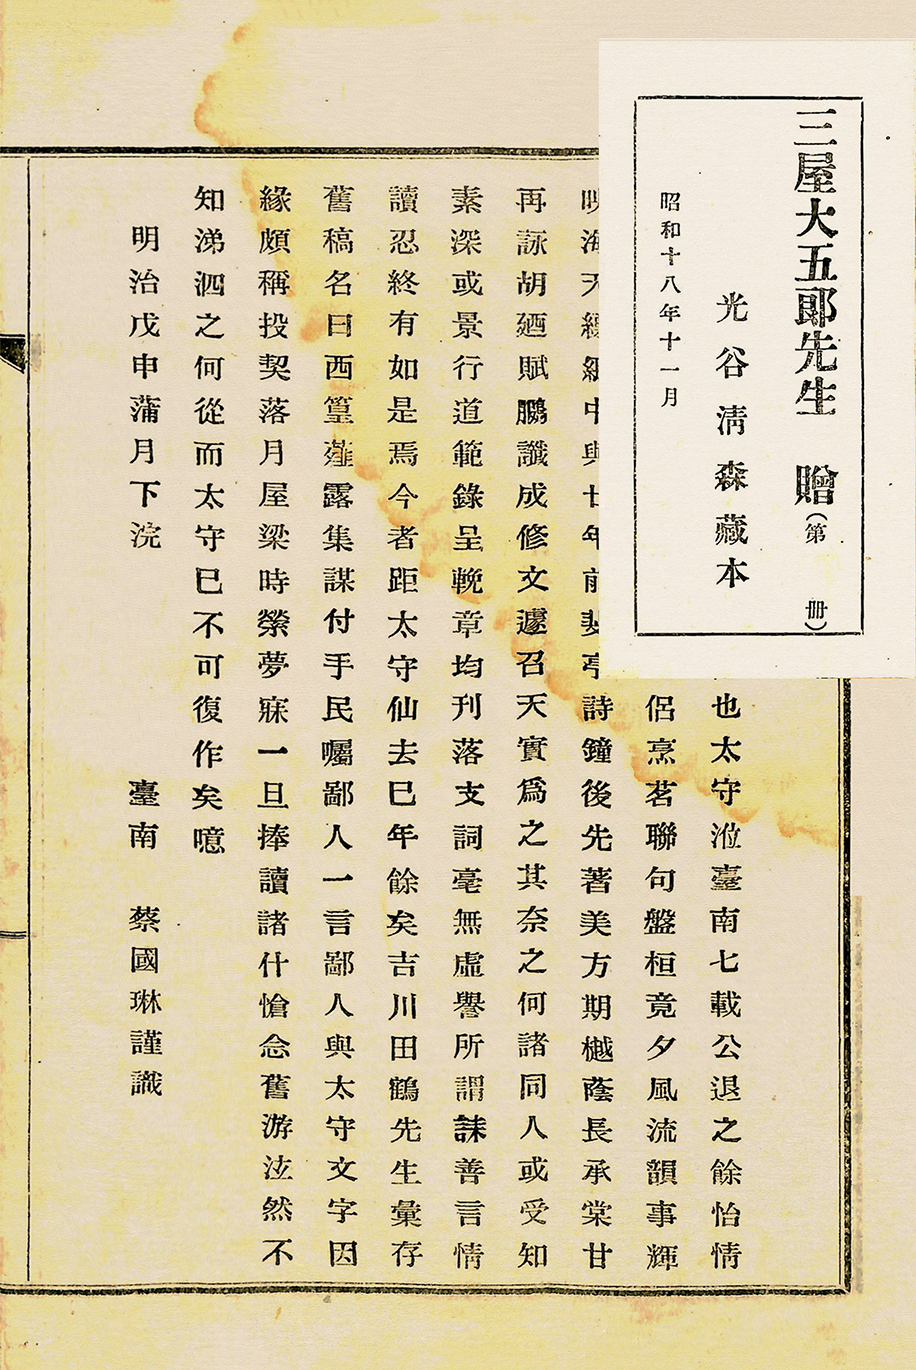 三屋大五郎先生 贈(第 冊)
光谷淸森藏本
昭和十八年十一月
也太守涖臺南七載公退之餘怡情
侶烹茗聯句盤桓竟夕風流韻事輝
海天 中與廿年前斐亭詩鐘後先著美方期樾蔭長承棠甘
再詠胡廼賦鵩讖成修文遽召天實爲之其奈之何諸同人或受知
素深或景行道範錄呈輓章均刊落支詞毫無虛譽所謂誄善言情
讀忍終有如是焉今者距太守仙去巳年餘矣吉川田鶴先生彙存
舊稿名曰西篁薤露集謀付手民囑鄙人一言鄙人與太守文字因
緣頗稱投契落月屋梁時縈夢寐一旦捧讀諸什愴念舊游泫然不
知涕泗之何從而太守巳不可復作矣噫
明治戊申蒲月下浣
臺南 蔡國琳謹識